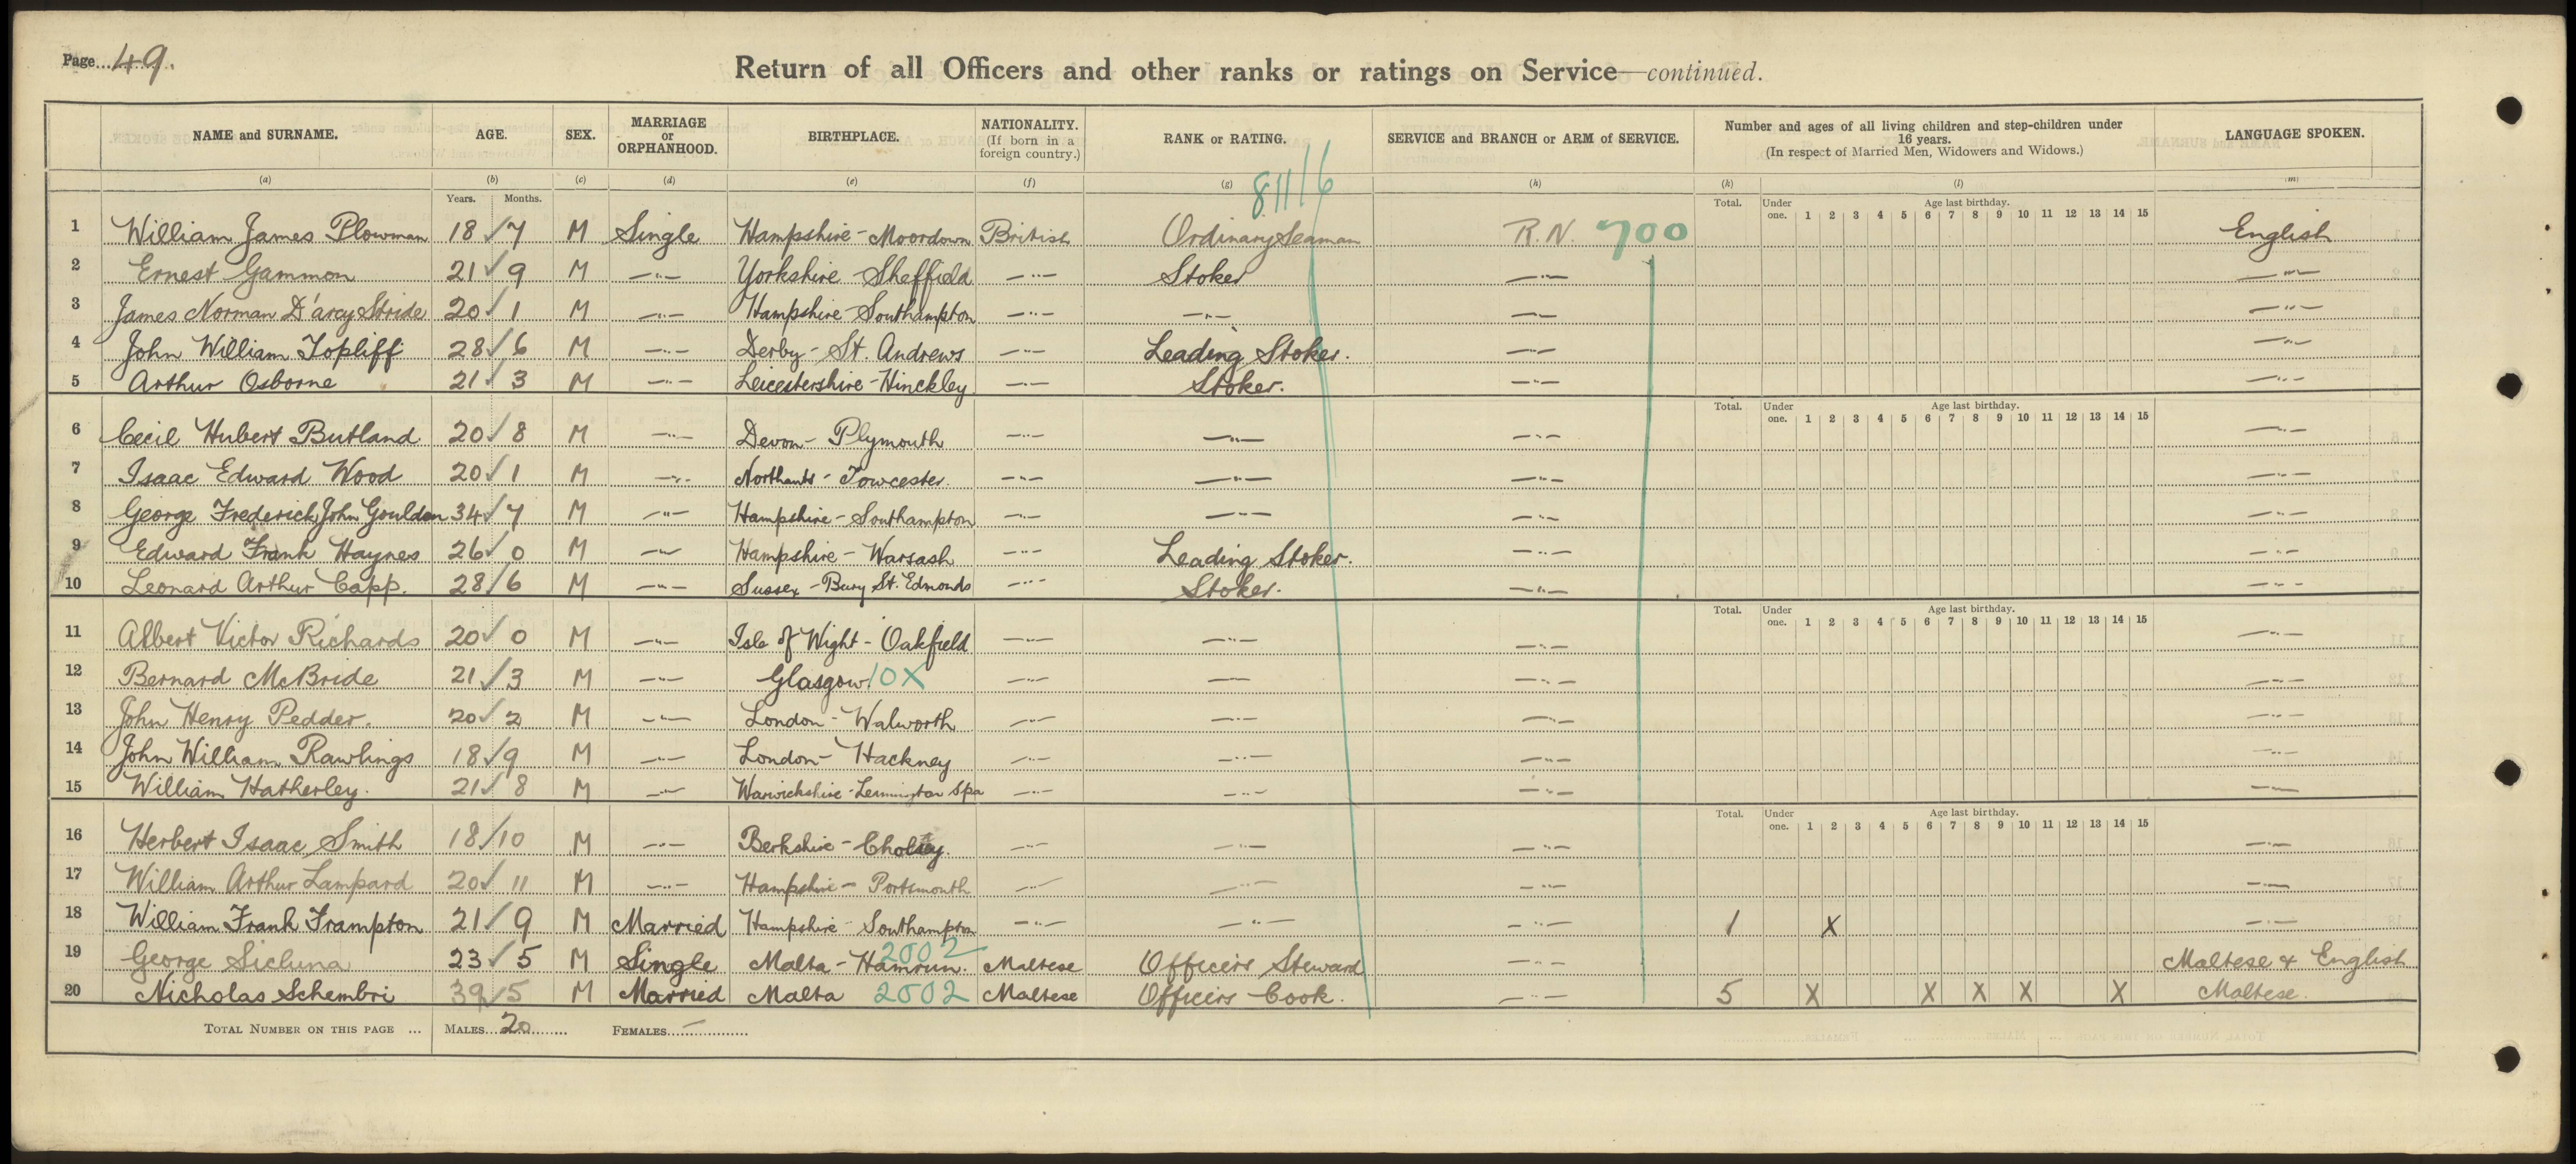 Page...49.
Return of all Officers and other ranks or ratings on Service—continued.
NAME and SURNAME. AGE. SEX. MARRIAGE or ORPHANHOOD. BIRTHPLACE. NATIONALITY. (If born in a foreign country.) RANK or RATING. SERVICE and BRANCH or ARM of SERVICE. Number and ages of all living children and step-children under 16 years. (In respect of Married Men, Widowers and Widows.) LANGUAGE SPOKEN.
(a) (b) (c) (d) (e) (f) (g) (h) (k) (l) (m)
811/6
Years. Months. Total. Under one. Age last birthday. 1 2 3 4 5 6 7 8 9 10 11 12 13 14 15
1 William James Plowman 18 / 7 M Single Hampshire - Moordown British Ordinary Seaman R.N 700 English
2 Ernest Gammon 21 / 9 M —"— Yorkshire - Sheffield —"— Stoker —"— —"—
3 James Norman D'arcy Stride 20 / 1 M —"— Hampshire - Southampton —"— —"— —"— —"—
4 John William Topliff 28 / 6 M —"— Derby - St. Andrews —"— Leading Stoker. —"— —"—
5 Arthur Osborne 21 / 3 M —"— Leicestershire - Hinckley —"— Stoker. —"— —"—
Total. Under one. Age last birthday. 1 2 3 4 5 6 7 8 9 10 11 12 13 14 15
6 Cecil Hubert Butland 20 / 8 M —"— Devon - Plymouth —"— —"— —"— —"—
7 Isaac Edward Wood 20 / 1 M —"— Northants - Towcester —"— —"— —"— —"—
8 George Frederick John Goulden 34 / 7 M —"— Hampshire - Southampton —"— —"— —"— —"—
9 Edward Frank Haynes 26 / 0 M —"— Hampshire - Warsash —"— Leading Stoker. —"— —"—
10 Leonard Arthur Capp. 28 / 6 M —"— Sussex - Bury St. Edmonds —"— Stoker. —"— —"—
Total. Under one. Age last birthday. 1 2 3 4 5 6 7 8 9 10 11 12 13 14 15
11 Albert Victor Richards 20 / 0 M —"— Isle of Wight - Oakfield —"— —"— —"— —"—
12 Bernard McBride 21 / 3 M —"— Glasgow 10X —"— —"— —"— —"—
13 John Henry Pedder. 20 / 2 M —"— London - Walworth —"— —"— —"— —"—
14 John William Rawlings 18 / 9 M —"— London - Hackney —"— —"— —"— —"—
15 William Hatherley. 21 / 8 M —"— Warwickshire - Lemington Spa —"— —"— —"— —"—
Total. Under one. Age last birthday. 1 2 3 4 5 6 7 8 9 10 11 12 13 14 15
16 Herbert Isaac Smith 18 / 10 M —"— Berkshire - —"— —"— —"— —"—
17 William Arthur Lampard 20 / 11 M —"— Hampshire - Portsmouth —"— —"— —"— —"—
18 William Frank Frampton 21 / 9 M Married Hampshire - Southampton —"— —"— —"— 1 X —"—
19 George Sicluna 23 / 5 M Single Malta - Hamrun. 2002 Maltese Officers Steward —"— Maltese & English
20 Nicholas Schembri 39 / 5 M Married Malta 2002 Maltese Officers Cook. —"— 5 X X X X X Maltese.
TOTAL NUMBER ON THIS PAGE ... MALES...20......... FEMALES...—............